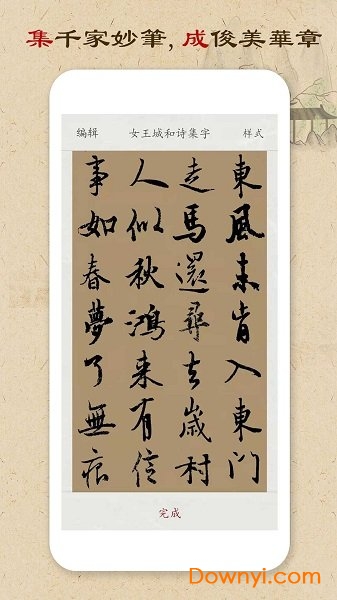 集千家妙筆,成俊美華章
编辑 女王城和诗集字 样式
東風未肯入東門
走馬還尋去歲村
人似秋鴻来有信
事如春夢了無痕
完成
当易网
Downyi.com